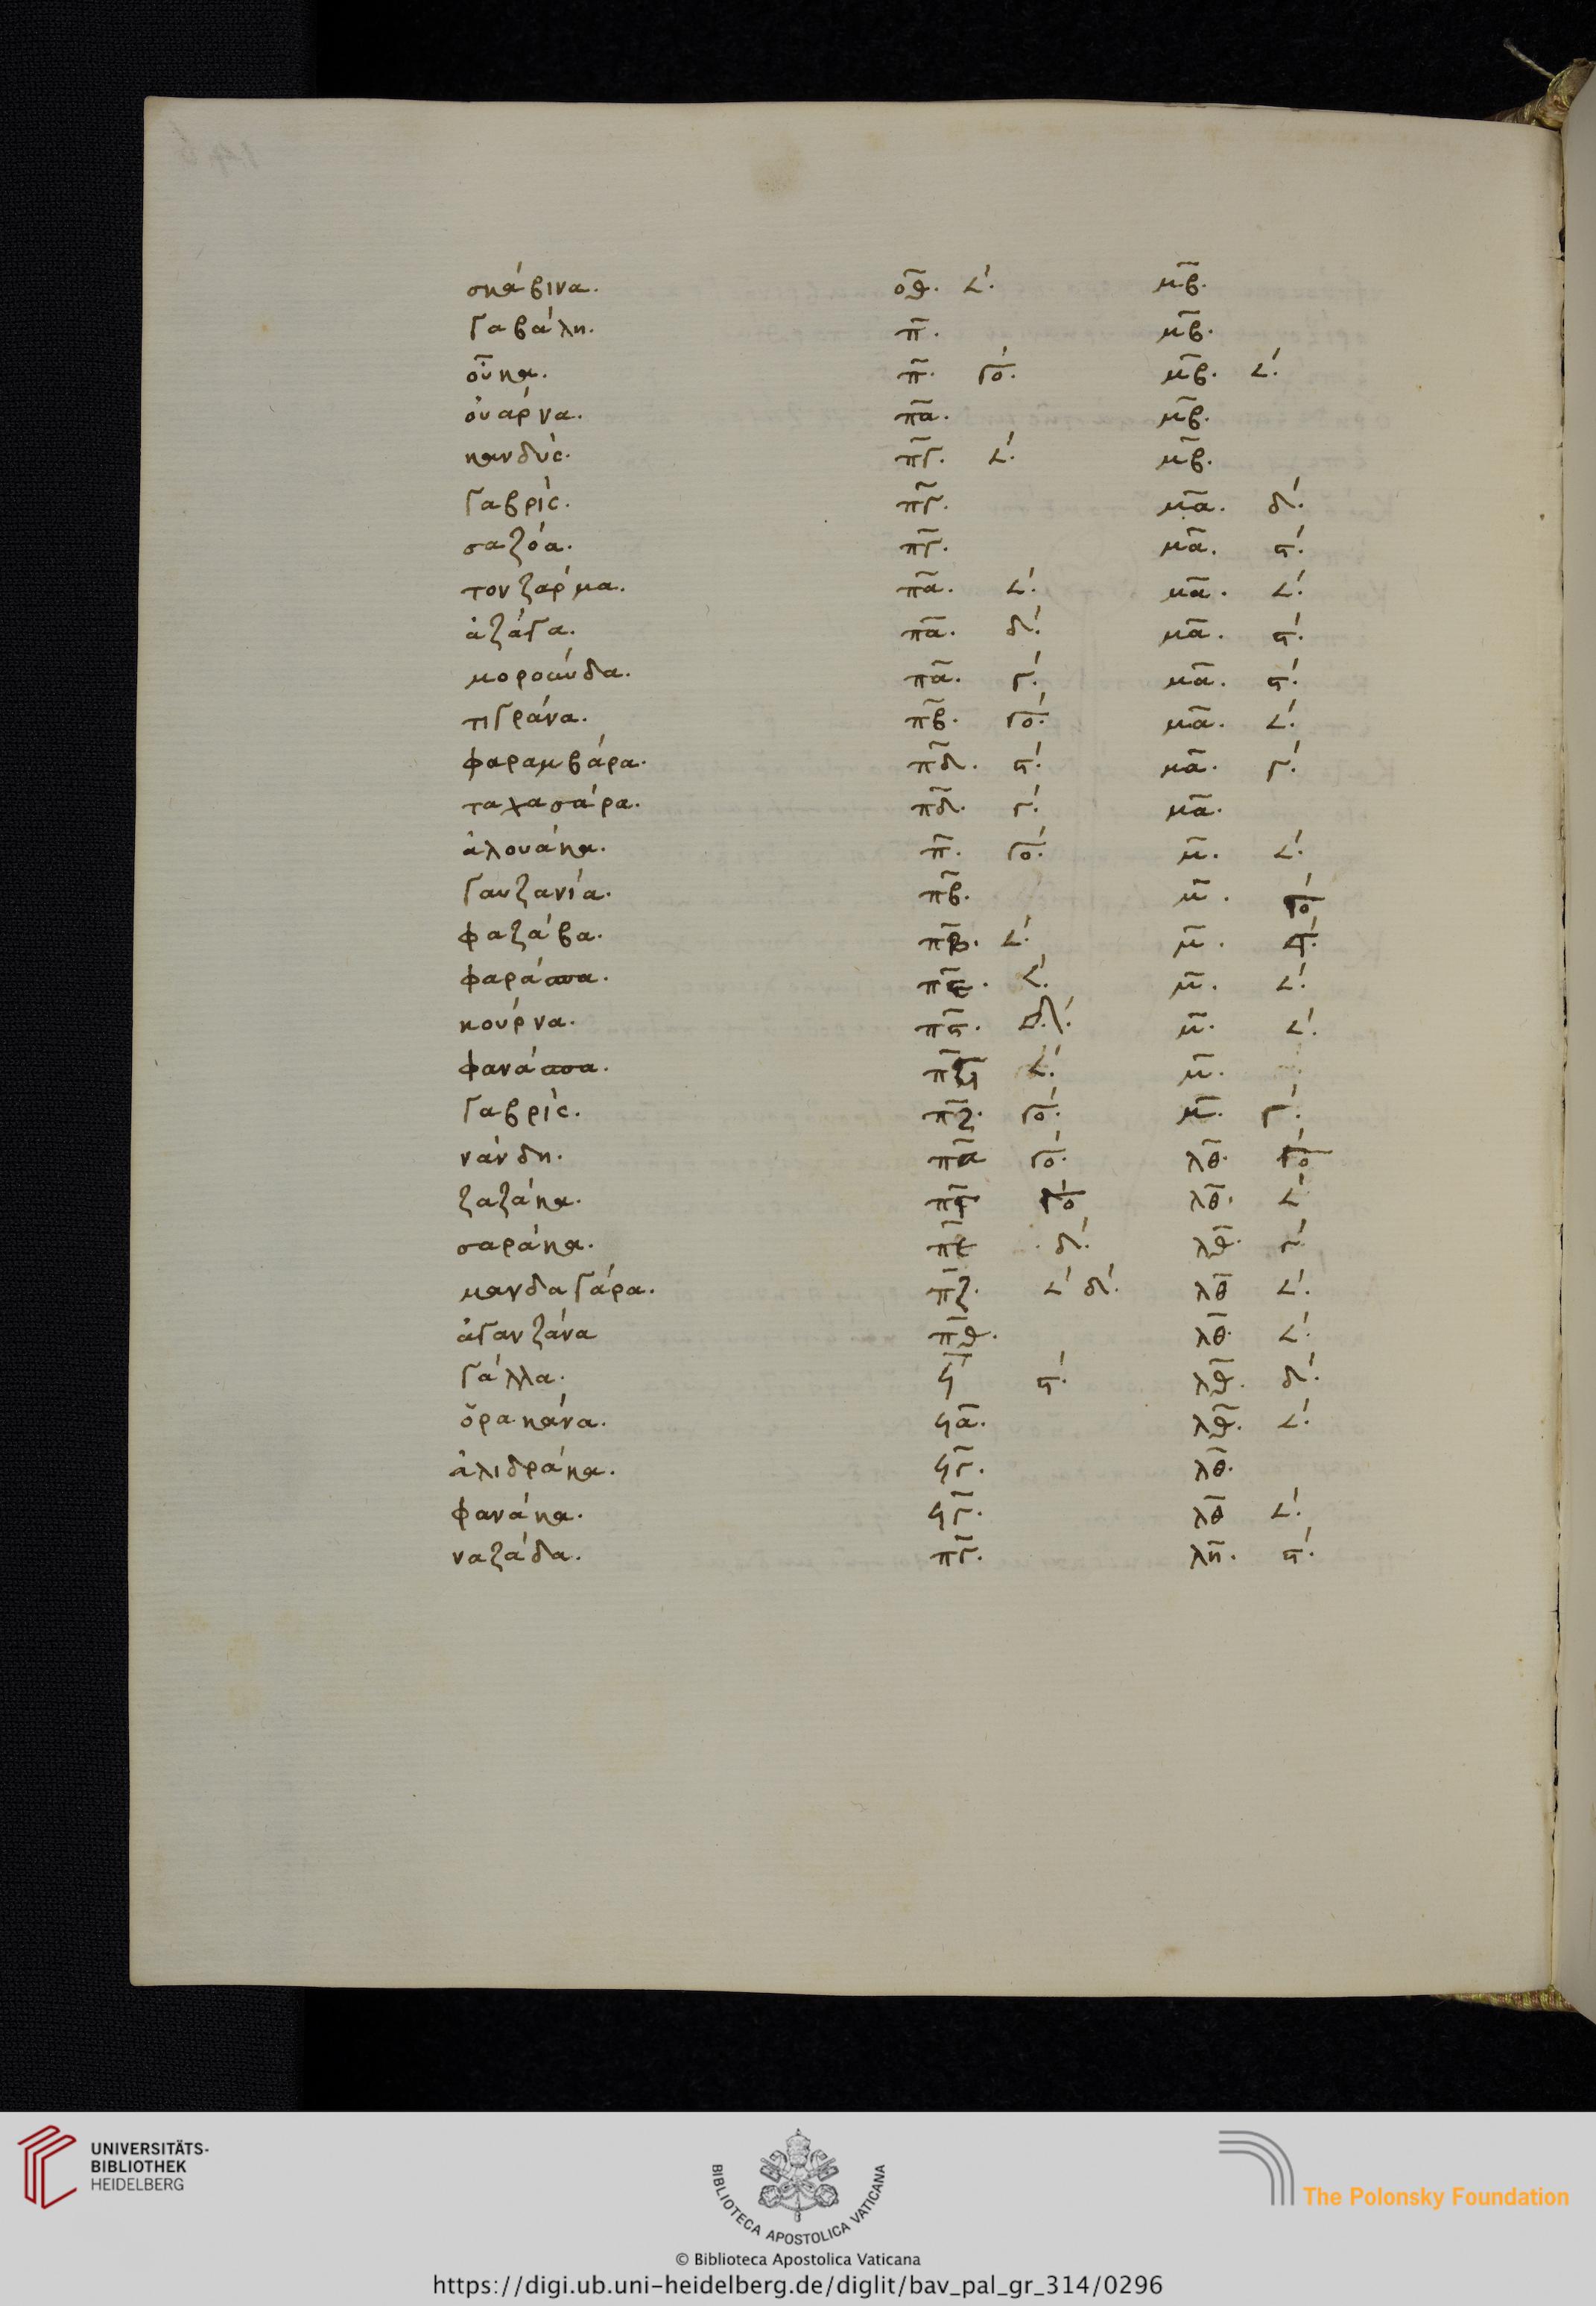 σκάβινα. οθ̅. ∠́. μβ̅.
γαβάλη. π̅. μβ̅.
οὖκα. π̅. γό. μβ̅. ∠́.
ὀυάρνα. πα̅. μβ̅.
κανδύς. πγ̅. ∠́. μβ̅.
γαβρίς. πγ̅. μα̅. δ́.
σαζόα. πγ̅. μα̅. ϛ́.
τονζάρμα. πα̅. ∠́. μα̅. ∠́.
ἀζάγα. πα̅. δ́. μα̅. ϛ́.
μοροάνδα. πα̅. γ́. μα̅. ϛ́.
τιγράνα. πβ̅. γό. μα̅. ∠́.
φαραμβάρα. πδ̅. ϛ́. μα̅. γ́.
ταχασάρα. πδ̅. γ́. μα̅.
ἀλουάκα. π̅. γό. μ̅. ∠́.
γαυζανία. πβ̅. μ̅. γό
φαζάβα. πβ̅. ∠́. μ̅. ϛ́.
φαράασα. πε̅. ∠́. μ̅. ∠́.
κούρνα. πϛ̅. δ́. μ̅. ∠́.
φανάασα. πϛ̅ ∠́. μ̅.
γαβρίς. πζ̅. γό. μ̅. γ́.
νάνδη. πα̅ γό. λθ̅. γό
ζαζάκα. πϛ̅ γό λθ̅. ∠́
σαράκα. πε̅ δ́. λθ̅. γ́
μανδαγάρα. πζ̅. ∠́ δ́. λθ̅ ∠́.
ἀγανζάνα πθ̅. λθ̅. ∠́.
γάλλα. ϟ̅ ϛ́. λθ̅. δ́.
ὄρακάνα. ϟα̅. λθ̅. ∠́.
ἀλιδράκα. ϟγ̅. λθ̅.
φανάκα. ϟγ̅. λθ̅ ∠́.
ναζάδα. πγ̅. λη̅. ϛ́.
UNIVERSITÄTS-
BIBLIOTHEK
HEIDELBERG
BIBLIOTECA APOSTOLICA VATICANA
The Polonsky Foundation
© Biblioteca Apostolica Vaticana
https://digi.ub.uni-heidelberg.de/diglit/bav_pal_gr_314/0296